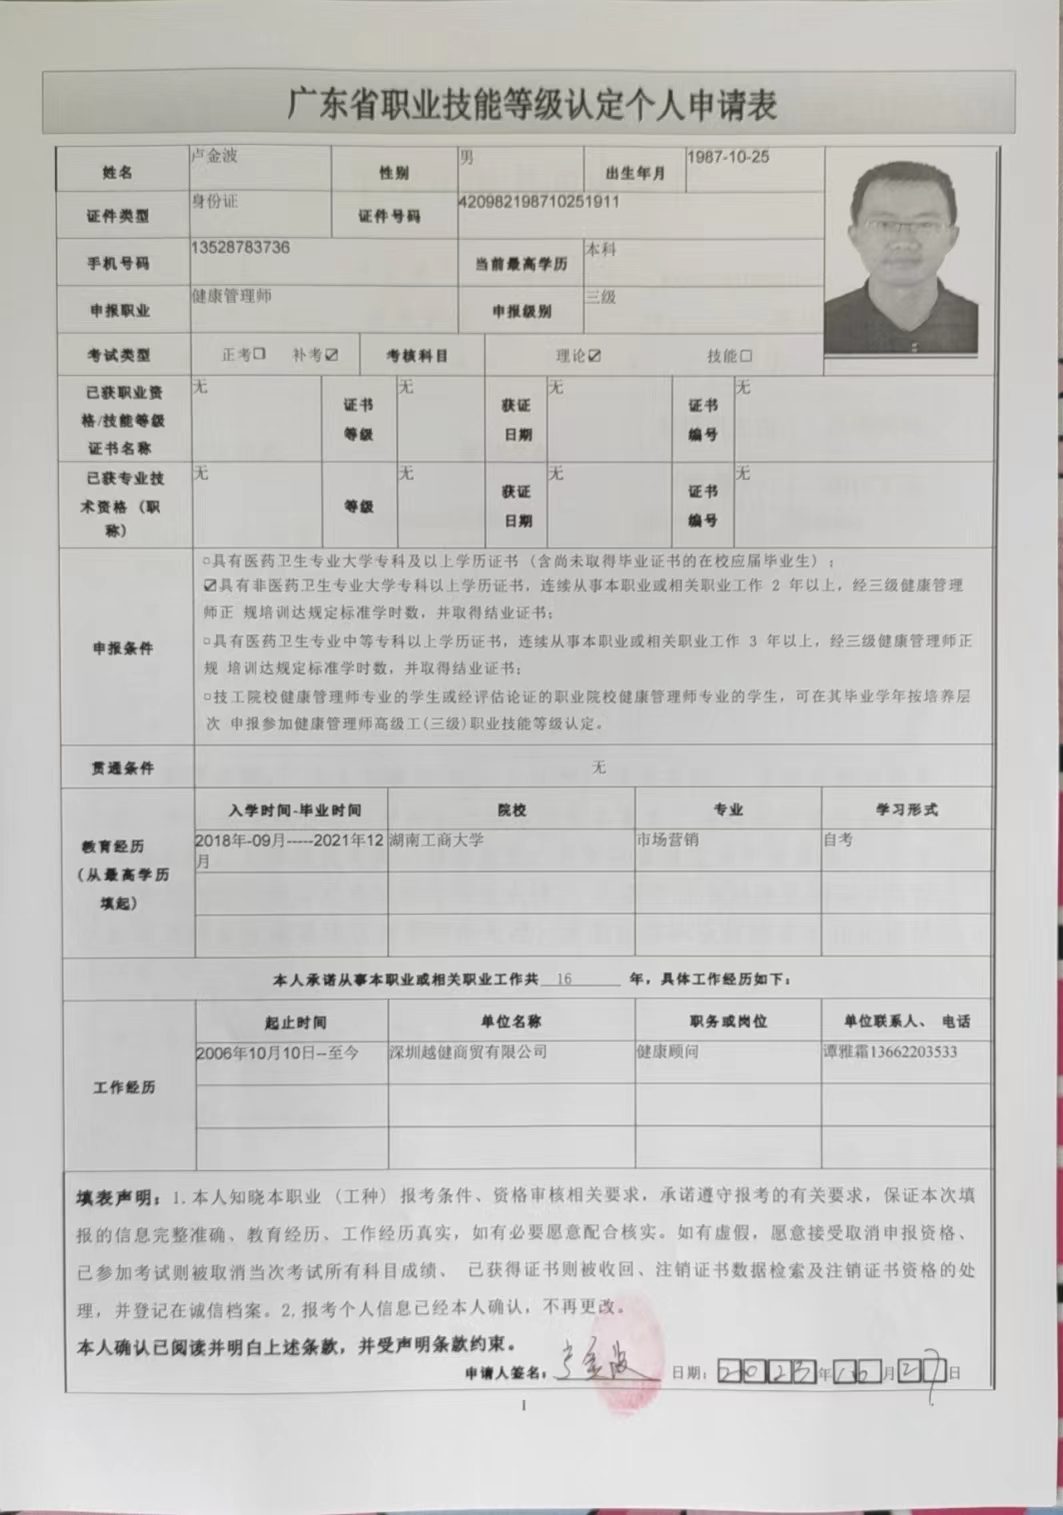 广东省职业技能等级认定个人申请表
姓名 卢金波 性别 男 出生年月 1987-10-25
证件类型 身份证 证件号码 420982198710251911
手机号码 13528783736 当前最高学历 本科
申报职业 健康管理师 申报级别 三级
考试类型 正考☐ 补考☑ 考核科目 理论☑ 技能☐
已获职业资格/技能等级证书名称 无 证书等级 无 获证日期 无 证书编号 无
已获专业技术资格（职称） 无 等级 无 获证日期 无 证书编号 无
申报条件
☐具有医药卫生专业大学专科及以上学历证书（含尚未取得毕业证书的在校应届毕业生）；
☑具有非医药卫生专业大学专科以上学历证书，连续从事本职业或相关职业工作 2 年以上，经三级健康管理
师正 规培训达规定标准学时数，并取得结业证书；
☐具有医药卫生专业中等专科以上学历证书，连续从事本职业或相关职业工作 3 年以上，经三级健康管理师正
规 培训达规定标准学时数，并取得结业证书；
☐技工院校健康管理师专业的学生或经评估论证的职业院校健康管理师专业的学生，可在其毕业学年按培养层
次 申报参加健康管理师高级工(三级)职业技能等级认定。
贯通条件 无
教育经历
(从最高学历
填起)
入学时间-毕业时间 院校 专业 学习形式
2018年-09月-----2021年12月 湖南工商大学 市场营销 自考
本人承诺从事本职业或相关职业工作共 16 年，具体工作经历如下：
工作经历
起止时间 单位名称 职务或岗位 单位联系人、 电话
2006年10月10日--至今 深圳越健商贸有限公司 健康顾问 谭雅霜13662203533
填表声明：1.本人知晓本职业（工种）报考条件、资格审核相关要求，承诺遵守报考的有关要求，保证本次填
报的信息完整准确、教育经历、工作经历真实，如有必要愿意配合核实。如有虚假，愿意接受取消申报资格、
已参加考试则被取消当次考试所有科目成绩、 已获得证书则被收回、注销证书数据检索及注销证书资格的处
理，并登记在诚信档案。2.报考个人信息已经本人确认，不再更改。
本人确认已阅读并明白上述条款，并受声明条款约束。
申请人签名：卢金波 日期：2023年10月27日
1